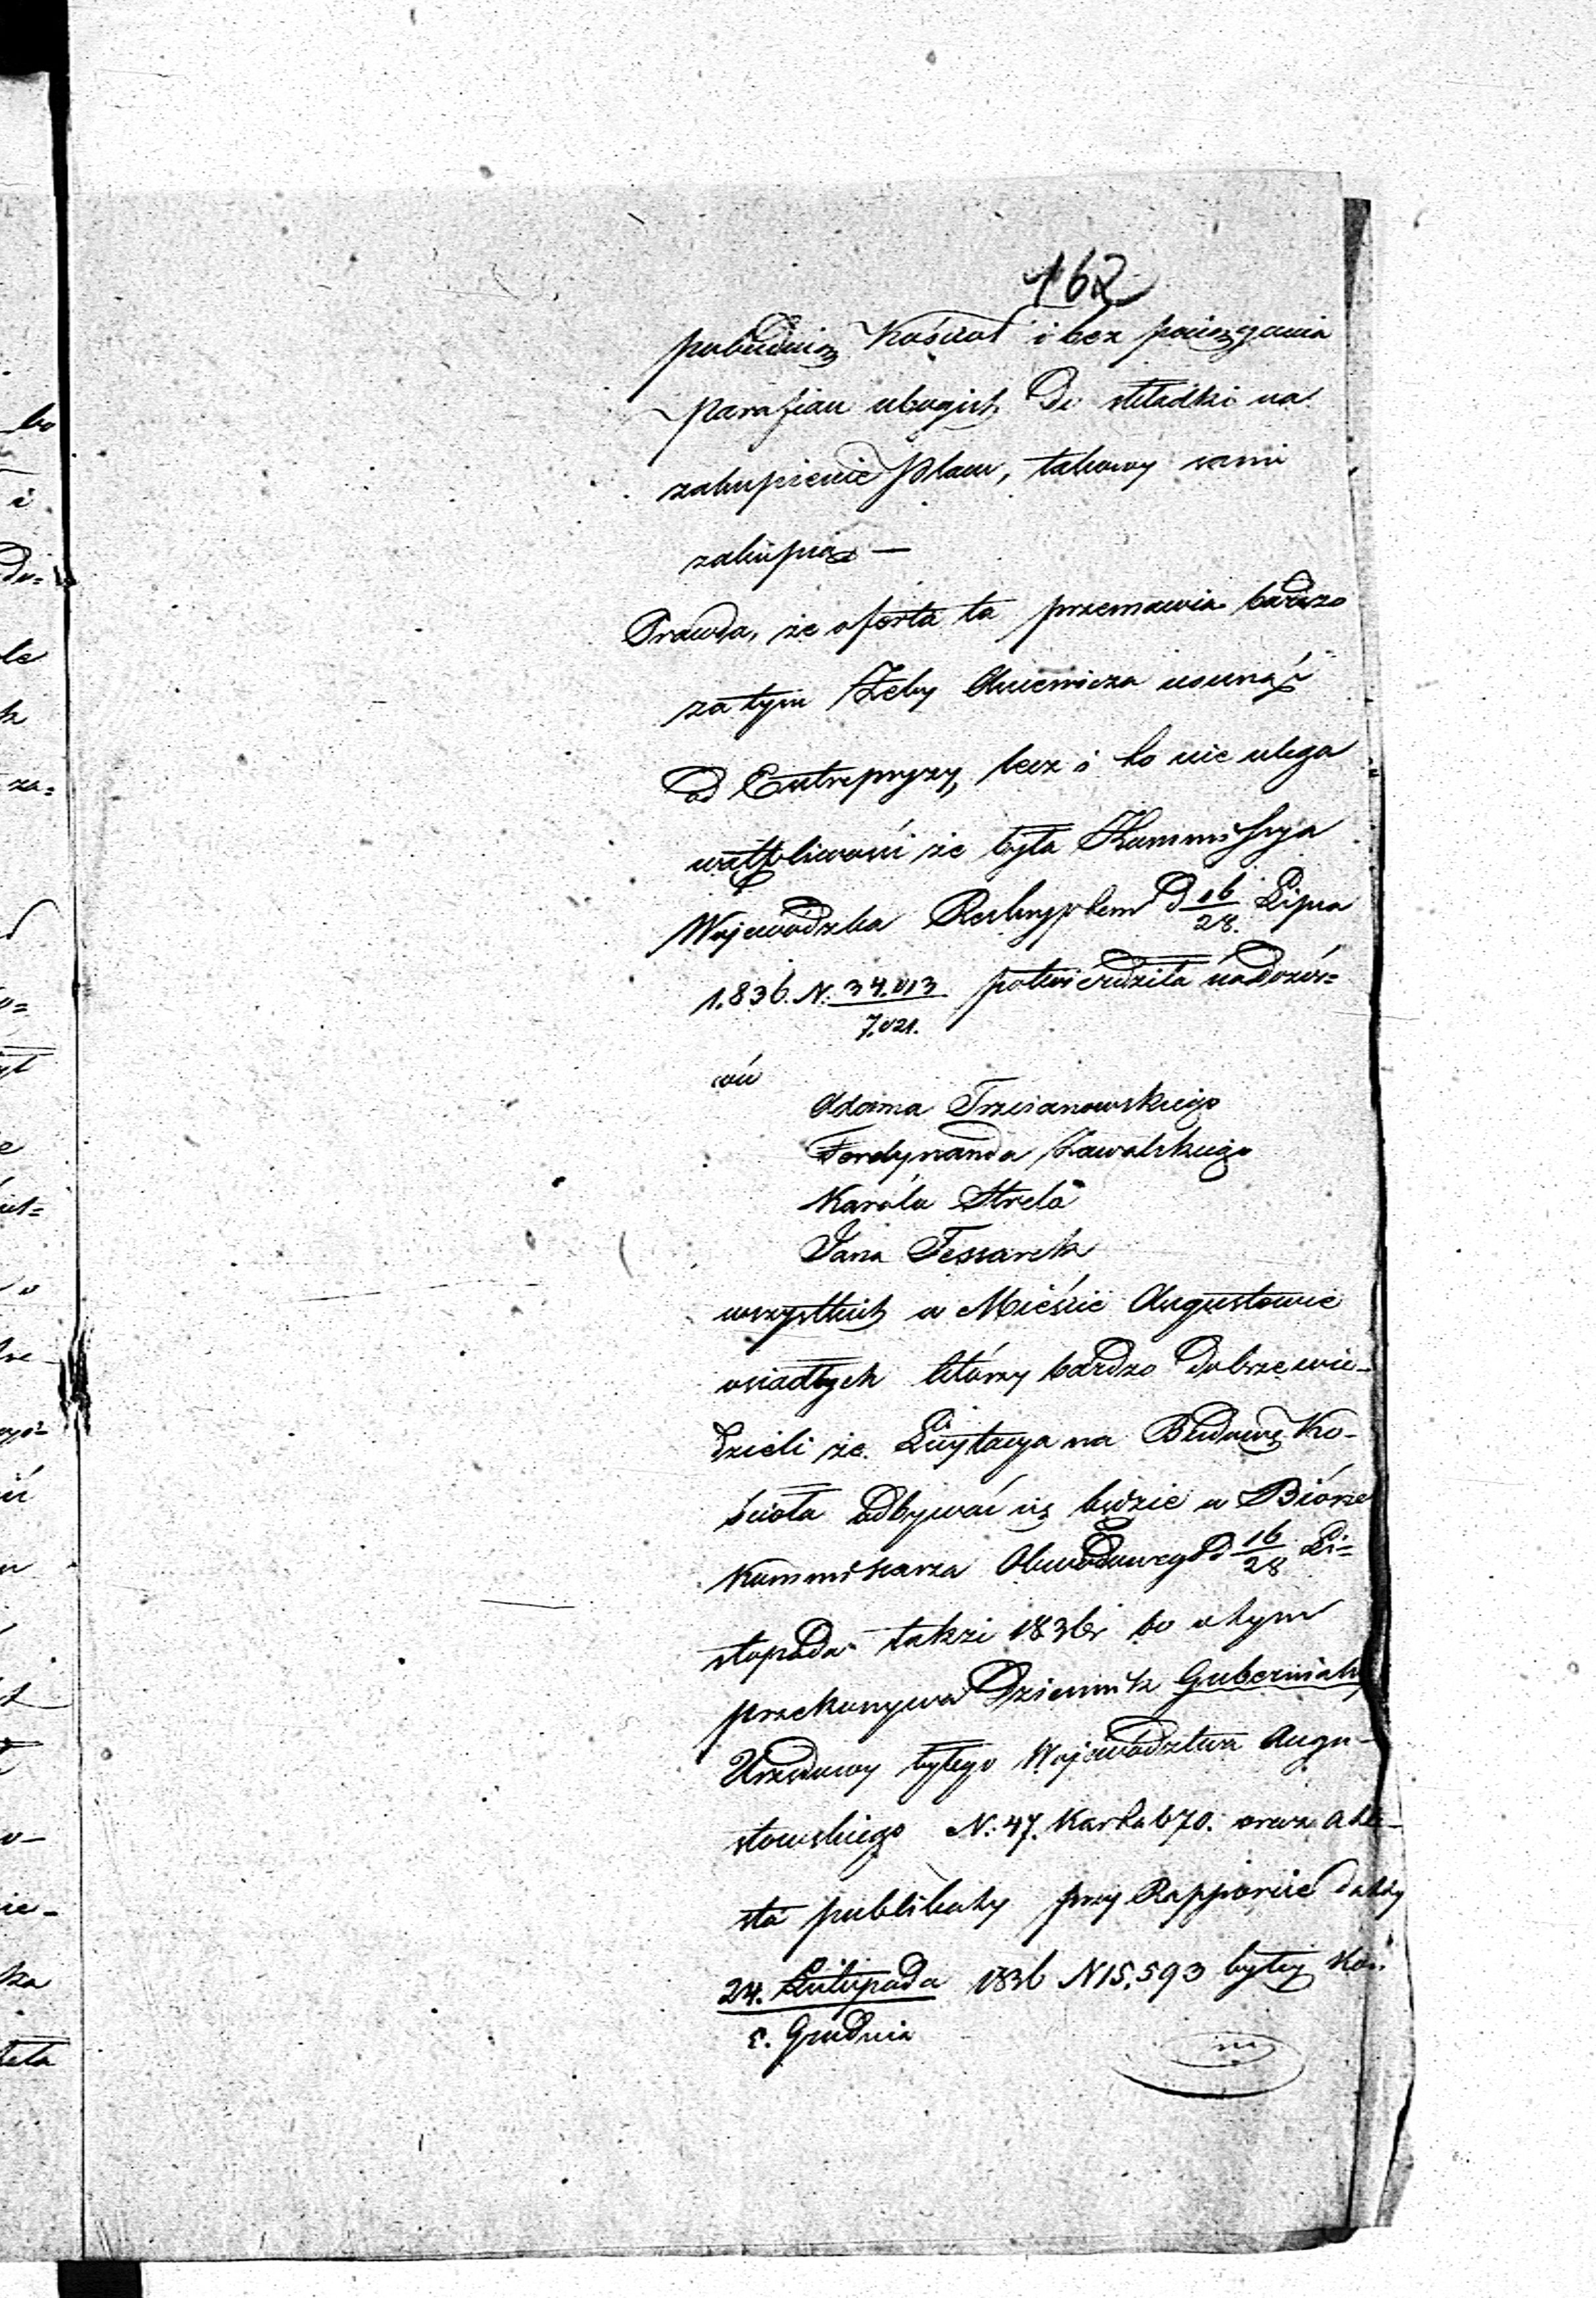 162
pobudują Kościoł i bez pociągania
Parafian ubogich do składki na
zakupienie placu, takowy sami
zakupią —
Prawda, że oferta ta przemawia bardzo
za tym żeby usunąć
od Entrepryzy, lecz i to nie ulega
wątpliwości że była Kommissya
Wojewódzka Reskryptem d 16/28. Lipca
1836. N: 34.013/7.021. potwierdziła nadzór=
ców
Adama Trzcianowskiego
Ferdynanda Kawalskiego
Karóla Strela
Jana Tessarek
wszystkich w Mieście Augustowie
osiadłych którzy bardzo dobrze wie-
dzieli że Licytacya na Budowę Ko-
ścioła odbywać się będzie w Biórze
Kommissarza Obwodowego d 16/28 Li=
stopada także 1836 r bo o tym
przekonywa Dziennik Gubernialny
Urzędowy byłego Województwa Augu-
stowskiego N: 47. Karta 670. oraz Atte-
sta publikaty przy Rapporcie daty
24. Listopada 1836 N 15,593 byłey Kom
Grudnia